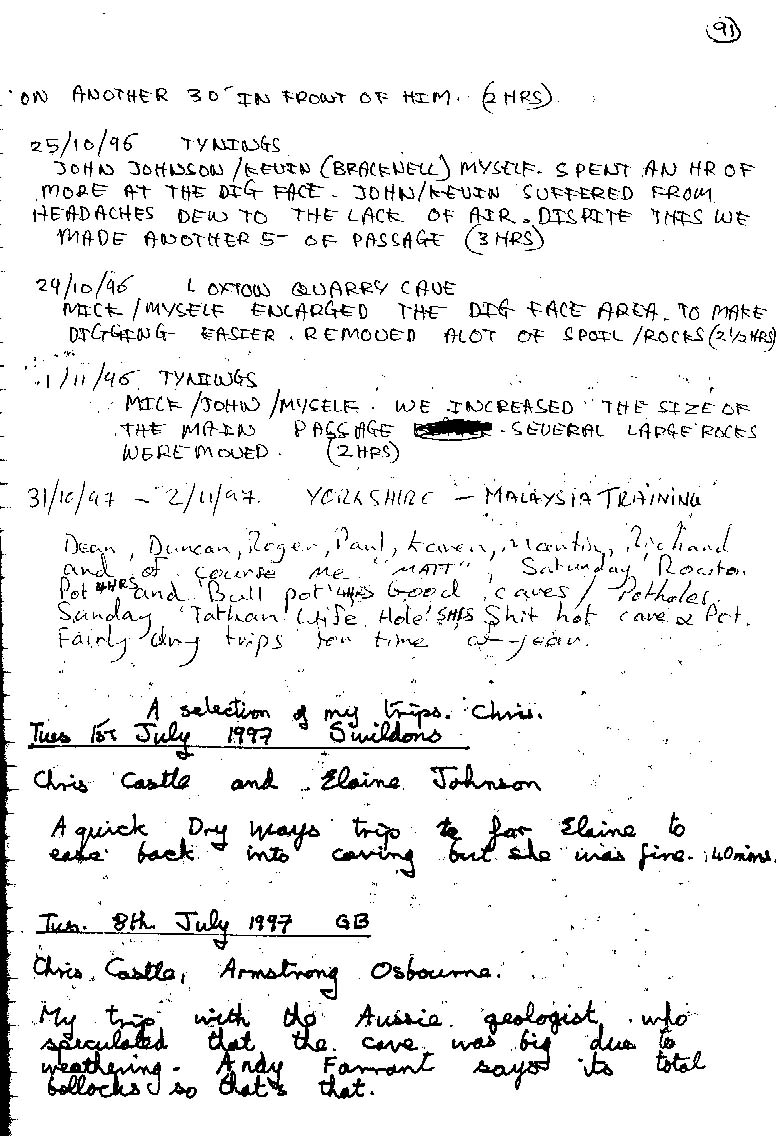 91
ON ANOTHER 30' IN FRONT OF HIM. (2 HRS)
25/10/96 TYNINGS
JOHN JOHNSON/KEVIN (BRACKNELL) MYSELF. SPENT AN HR OF
MORE AT THE DIG FACE. JOHN/KEVIN SUFFERED FROM
HEADACHES DEW TO THE LACK OF AIR. DISPITE THIS WE
MADE ANOTHER 5- OF PASSAGE (3 HRS)
29/10/96 LOXTON QUARRY CAVE
MICK/MYSELF ENLARGED THE DIG FACE AREA. TO MAKE
DIGGING EASIER. REMOVED ALOT OF SPOIL/ROCKS (2 1/2 HRS)
1/11/96 TYNINGS
MICK/JOHN/MYSELF. WE INCREASED THE SIZE OF
THE MAIN PASSAGE. SEVERAL LARGE ROCKS
WERE MOVED. (2 HRS)
31/10/97 - 2/11/97. YORKSHIRE - MALAYSIA TRAINING
Dean, Duncan, Roger, Paul, Karen, Martin, Richard
and of course me "MATT", Saturday Rowten
Pot 4HRS and Bull pot 4HRS Good caves / Potholes.
Sunday 'Tatham Wife Hole' 5HRS Shit hot cave & Pot.
Fairly dry trips for time of year.
A selection of my trips. Chris.
Tues 1st July 1997 Swildons
Chris Castle and Elaine Johnson
A quick Dry Ways trip for Elaine to
ease back into caving but she was fine. 40mins.
Tues. 8th July 1997 GB
Chris Castle, Armstrong Osbourne.
My trip with the Aussie geologist who
speculated that the cave was big due to
weathering. Andy Farrant says its total
bollocks so that's that.